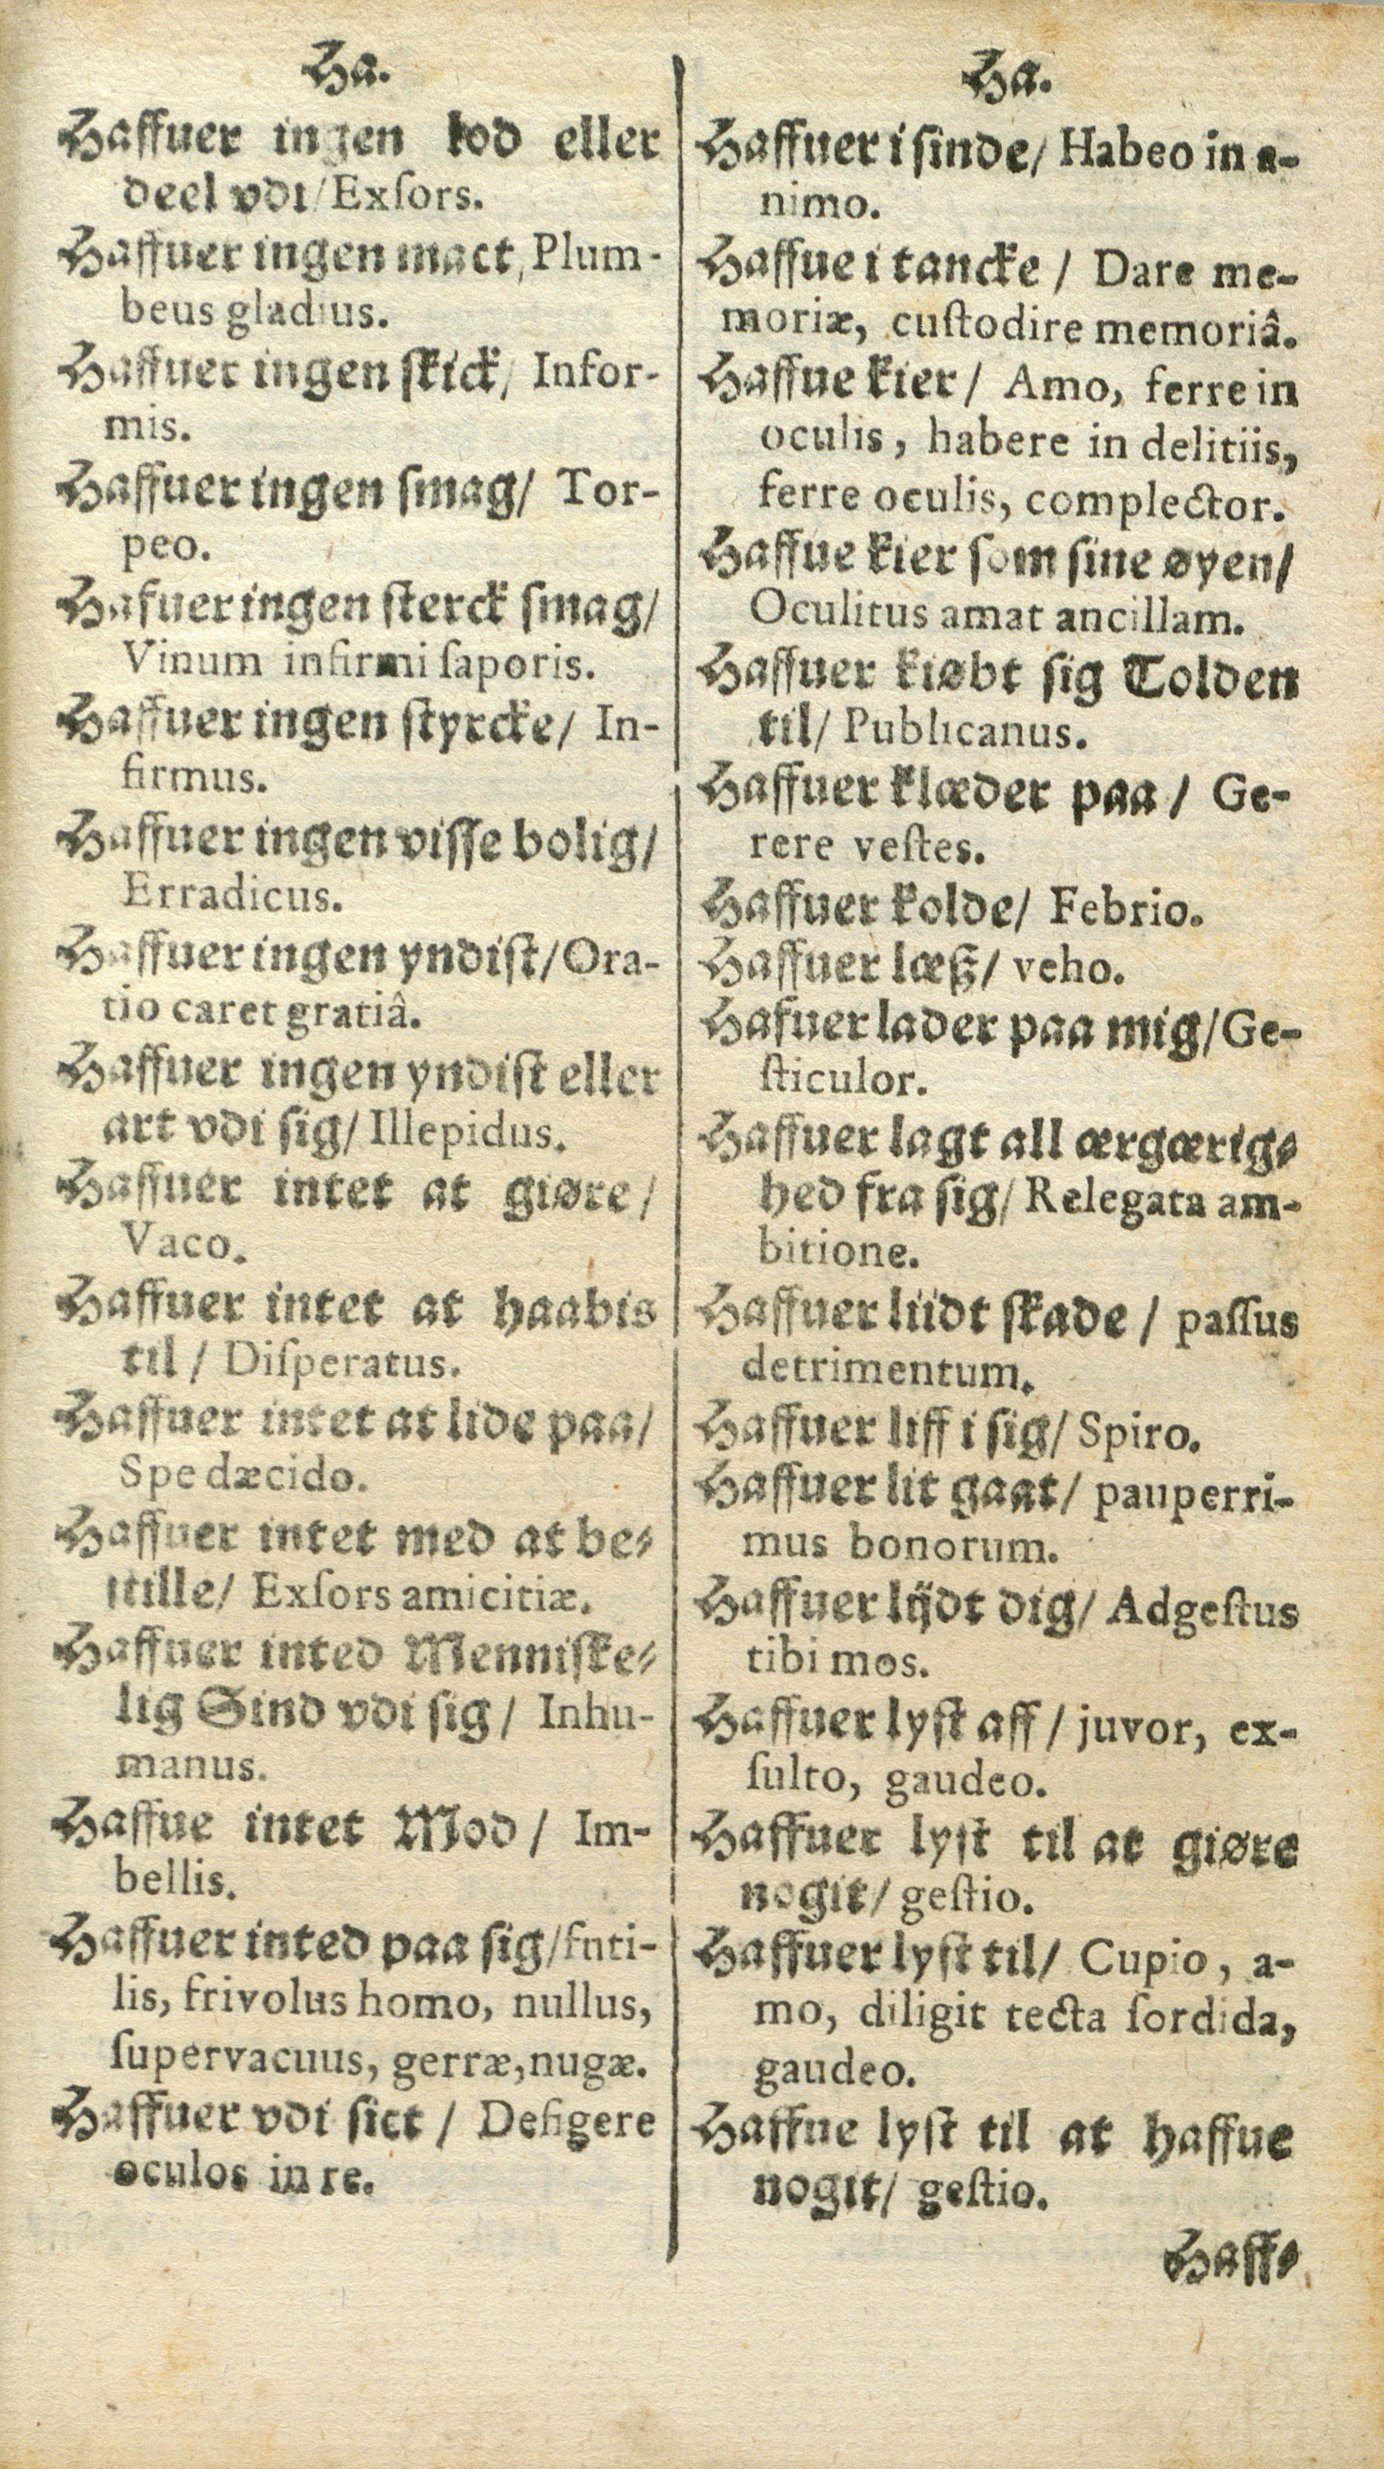 Ha.
Haffuer ingen lod eller
deel vdi/ Exſors.
Haffuer ingen mact, Plum-
beus gladius.
Haffuer ingen ſkick/ Infor-
mis.
Haffuer ingen ſmag/ Tor-
peo.
Hafuer ingen ſterck ſmag/
Vinum infirmi ſaporis.
Haffuer ingen ſtyrcke/ In-
firmus.
Haffuer ingen viſſe bolig/
Erradicus.
Haffuer ingen yndiſt/ Ora-
tio caret gratiâ.
Haffuer ingen yndiſt eller
art vdi ſig/ Illepidus.
Haffuer intet at giøre/
Vaco.
Haffuer intet at haabis
til/ Diſperatus.
Haffuer intet at lide paa/
Spe dæcido.
Haffuer intet med at be-
ſtille/ Exſors amicitiæ.
Haffuer inted Menniſke-
lig Sind vdi ſig/ Inhu-
manus.
Haffue intet Mod/ Im-
bellis.
Haffuer inted paa ſig/ futi-
lis, frivolus homo, nullus,
ſupervacuus, gerræ, nugæ.
Haffuer vdi ſict/ Defigere
oculos in re.
Ha.
Haffuer i ſinde/ Habeo in a-
nimo.
Haffue i tancke/ Dare me-
moriæ, cuſtodire memoriâ.
Haffue kier/ Amo, ferre in
oculis, habere in delitiis,
ferre oculis, complector.
Haffue kier ſom ſine øyen/
Oculitus amat ancillam.
Haffuer kiøbt ſig Tolden
til/ Publicanus.
Haffuer klæder paa/ Ge-
rere veſtes.
Haffuer kolde/ Febrio.
Haffuer læß/ veho.
Hafuer lader paa mig/ Ge-
ſticulor.
Haffuer lagt all ærgærig-
hed fra ſig/ Relegata am-
bitione.
Haffuer liidt ſkade/ paſſus
detrimentum.
Haffuer liff i ſig/ Spiro.
Haffuer lit gaat/ pauperri-
mus bonorum.
Haffuer lijdt dig/ Adgeſtus
tibi mos.
Haffuer lyſt aff/ juvor, ex-
ſulto, gaudeo.
Haffuer lyſt til at giøre
nogit/ geſtio.
Haffuer lyſt til/ Cupio, a-
mo, diligit tecta ſordida,
gaudeo.
Haffue lyſt til at haffue
nogit/ geſtio.
Haff-